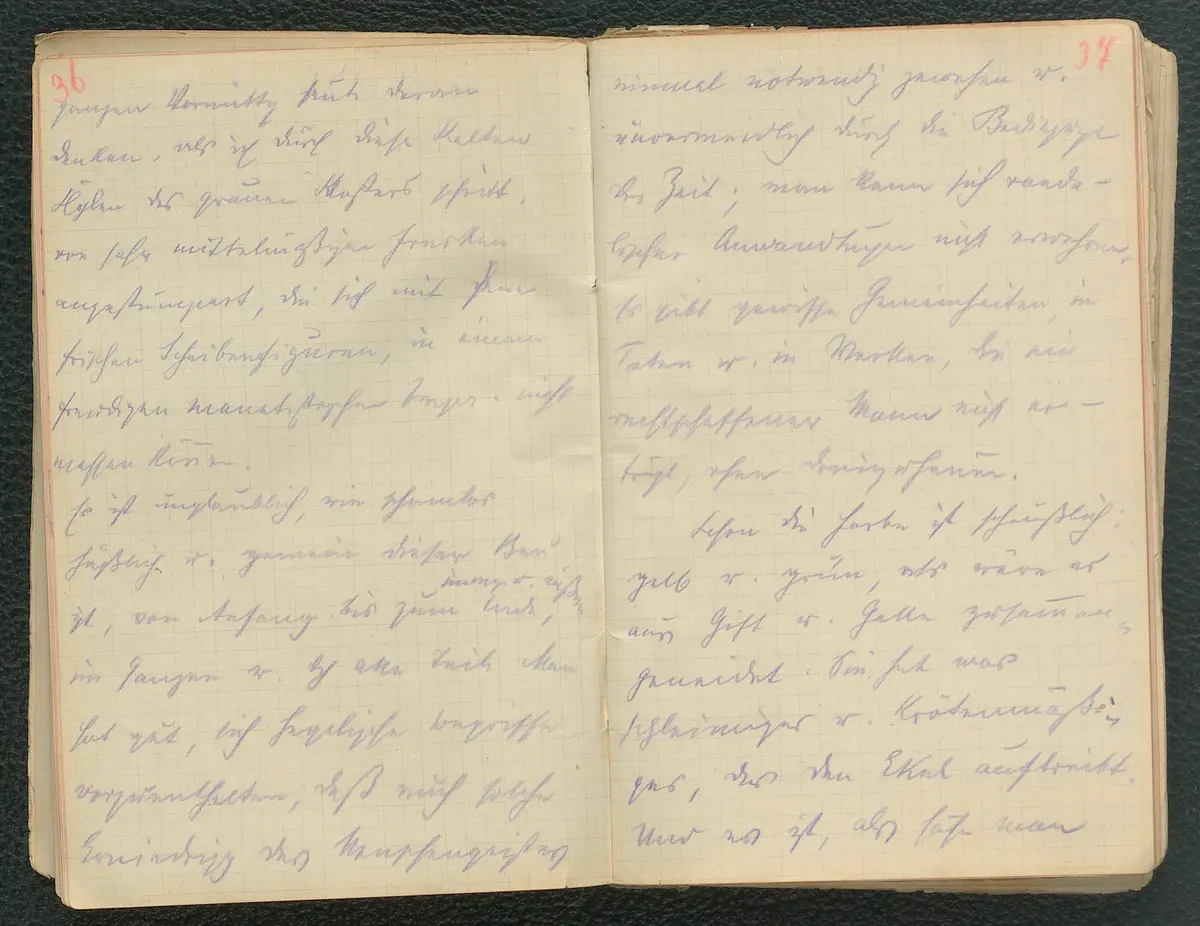 36
ganzen Vormittg heute daran
denken, als ich durch diese kalten
Hylen des grauen Klosters schritt,
von sehr mittelmäßigen Fresken
angestumpert, die sich mit
frischen Scheibenfiguren, in einem
freudigen
messen können.
Es ist unglaublich, wie schamlos
häßlich u. gemein dieser Bau
innen u. außen
ist, von Anfang bis zum Ende,
im Ganzen u. alle Teile Man
hat gut, sich hegelische Begriffe
vorzuenthalten, daß auch solche
Erniedrigg des Menschengeistes
37
einmal notwendig gewesen u.
unvermeidlich durch die Bedinggg
der Zeit; man kann sich vanda-
lischer Anwandlungen nicht erwehren.
Es gibt gewisse Gemeinheiten, in
Taten u. in Werken, die ein
rechtschaffener Mann nicht er-
trägt, ohne dreinzuhauen.
Schon die Farbe ist scheußlich:
gelb u. grün, als wäre es
aus Gift u. Galle zusammen-
geneidet. Sie hat was
schleimiges u. Krötenmäßi-
ges, das den Ekel auftreibt.
Und es ist, als sähe man